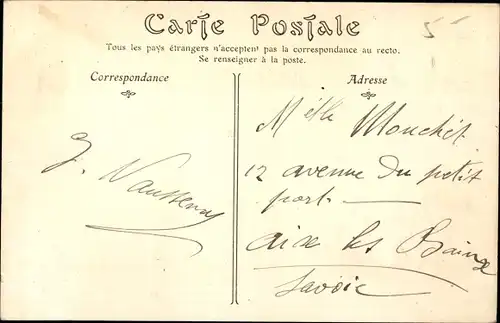 5
Carte Postale
Tous les pays étrangers n'acceptent pas la correspondance au recto.
Se renseigner à la poste.
Correspondance
J.
Adresse
Melle Mouchet
12 avenue du petit
port
aix les Bains
Savoie